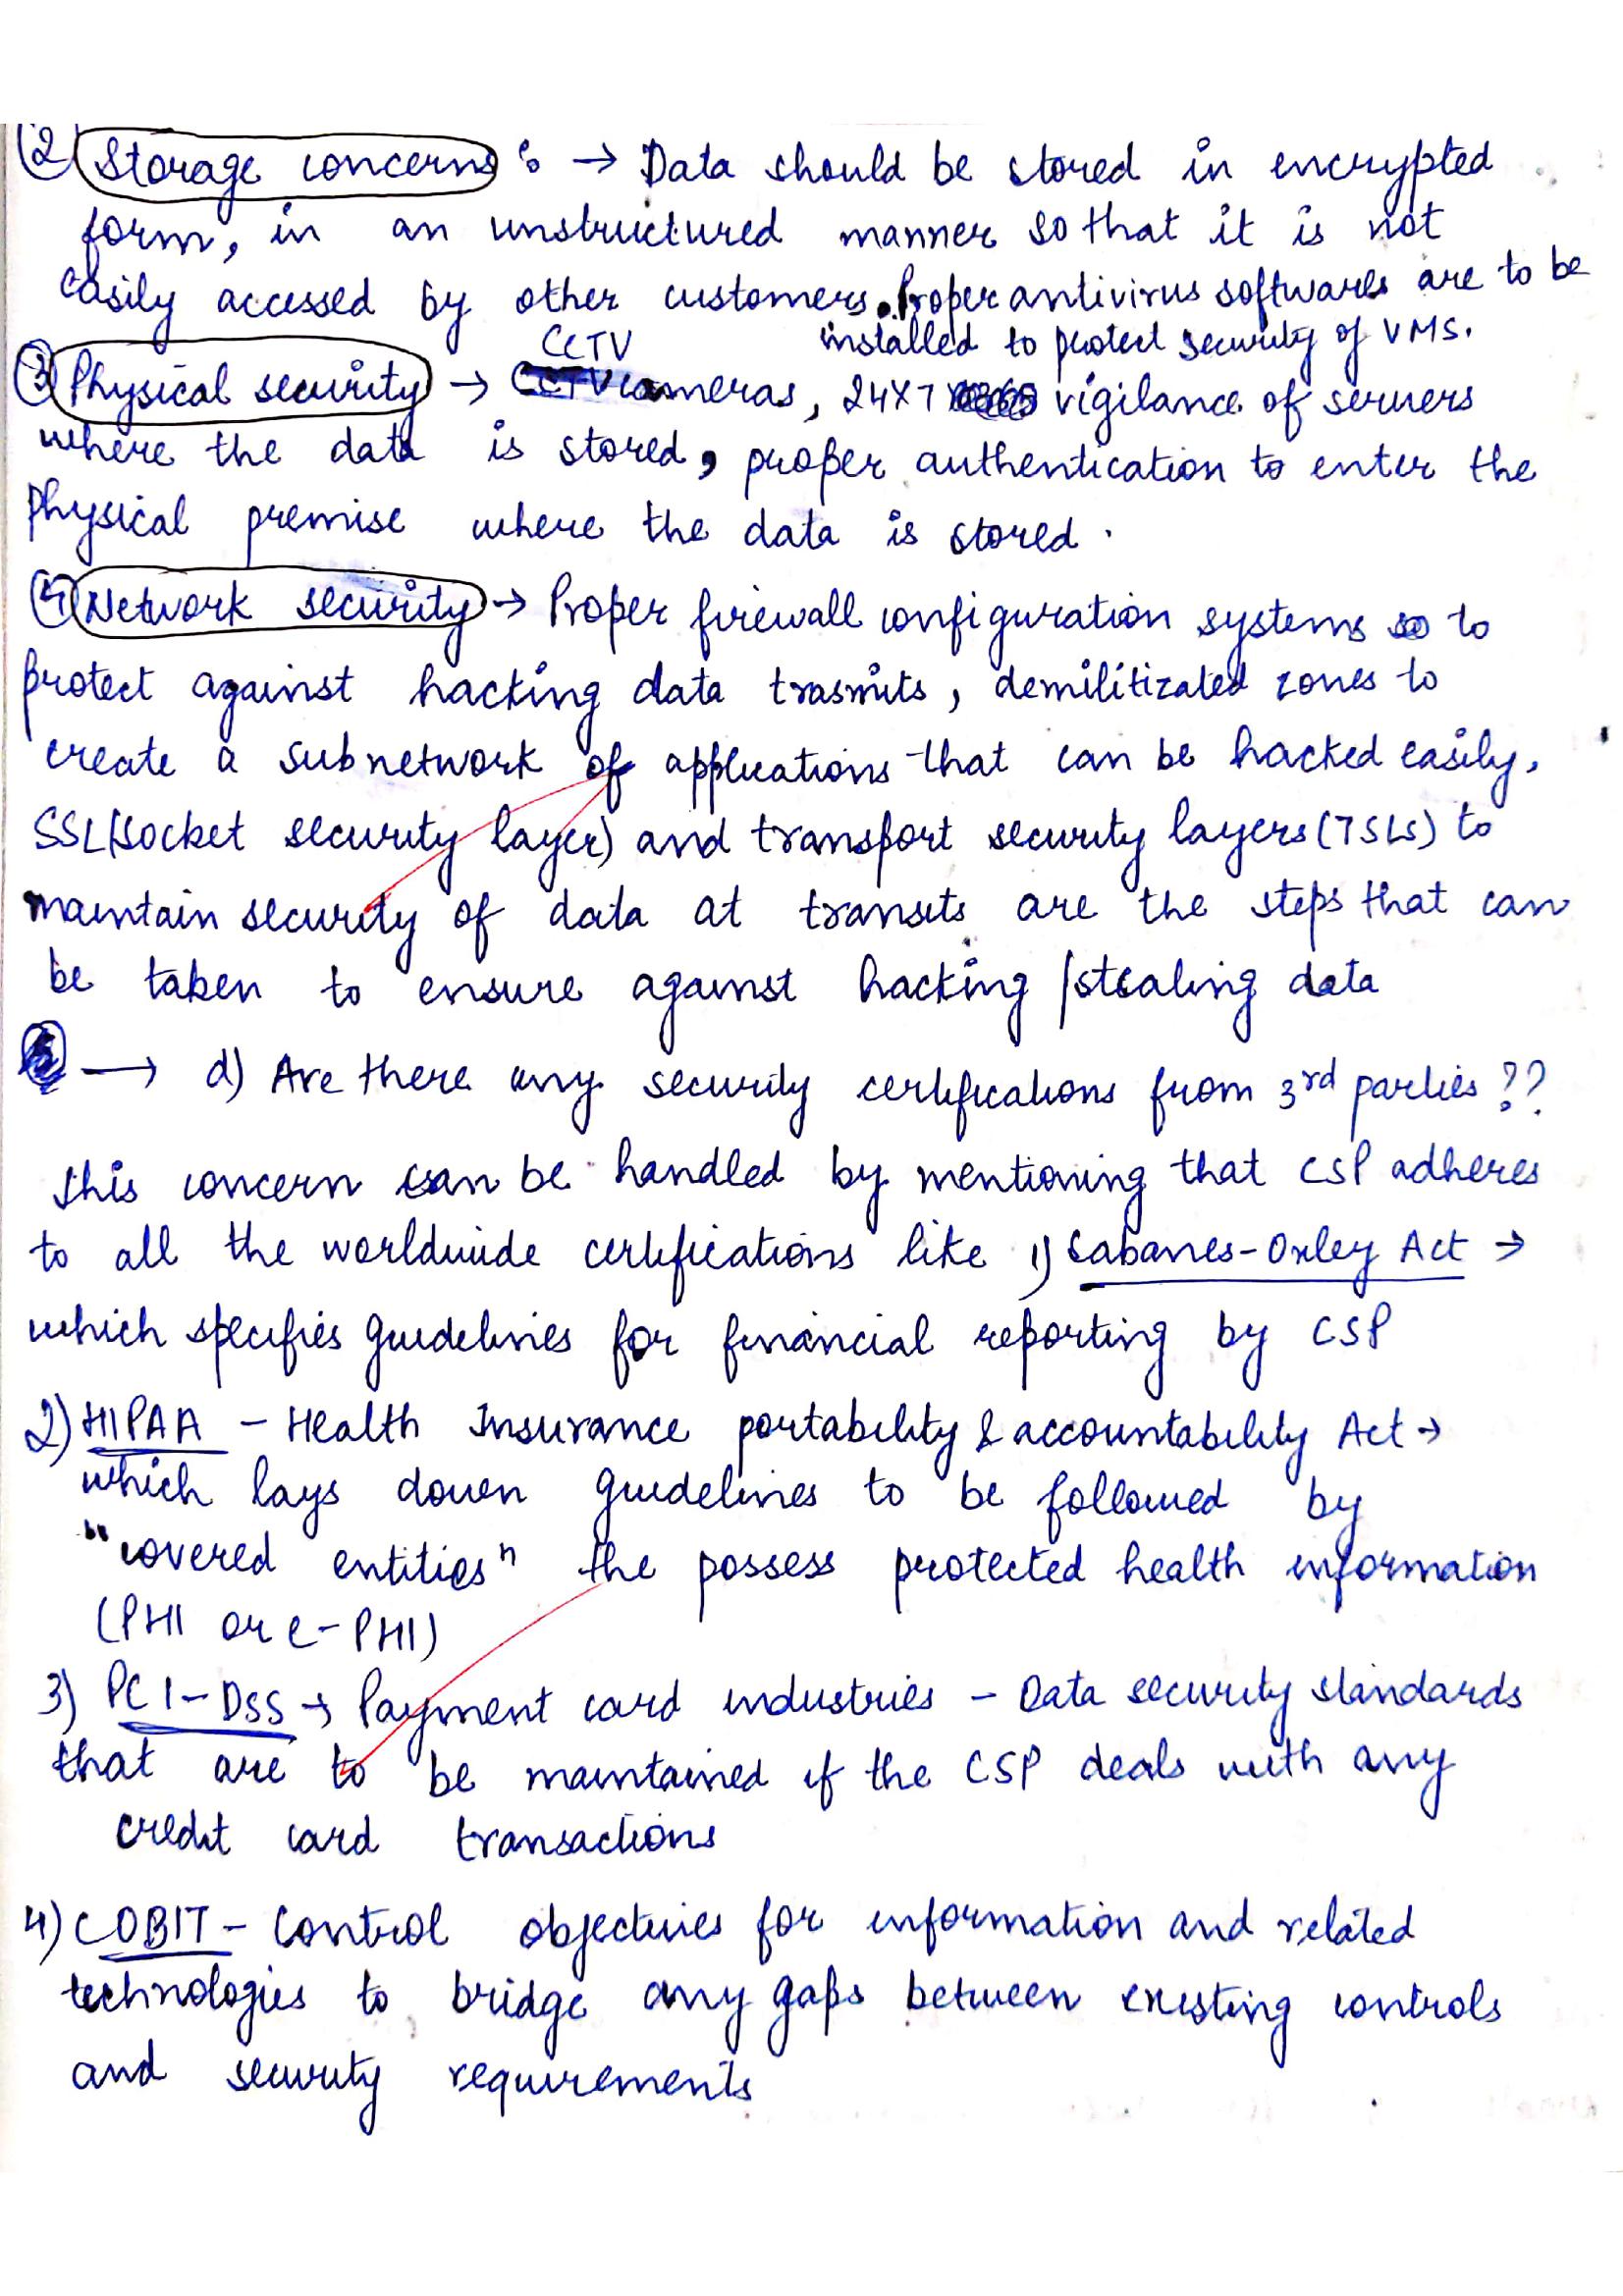 ② Storage concerns : → Data should be stored in encrypted
form, in an unstructured manner so that it is not
easily accessed by other customers. Proper antivirus softwares are to be
installed to protect security of VMS.
③ Physical security → CCTV cameras, 24X7 vigilance of servers
where the data is stored, proper authentication to enter the
physical premise where the data is stored.
④ Network security → Proper firewall configuration systems so to
protect against hacking data trasmits, demilitizated zones to
create a subnetwork of applications that can be hacked easily,
SSL(socket security layer) and transport security layers(TSLS) to
maintain security of data at transits are the steps that can
be taken to ensure against hacking /stealing data
→ d) Are there any security certifications from 3rd parties ??
this concern can be handled by mentioning that CSP adheres
to all the worldwide certifications like 1) Sabanes-Oxley Act →
which specifies guidelines for financial reporting by CSP
2) HIPAA - Health Insurance portability & accountability Act →
which lays down guidelines to be followed by
"covered entities" the possess protected health information
(PHI or e-PHI)
3) PCI-DSS → Payment card industries - Data security standards
that are to be maintained if the CSP deals with any
credit card transactions
4) COBIT - Control objectives for information and related
technologies to bridge any gaps between existing controls
and security requirements